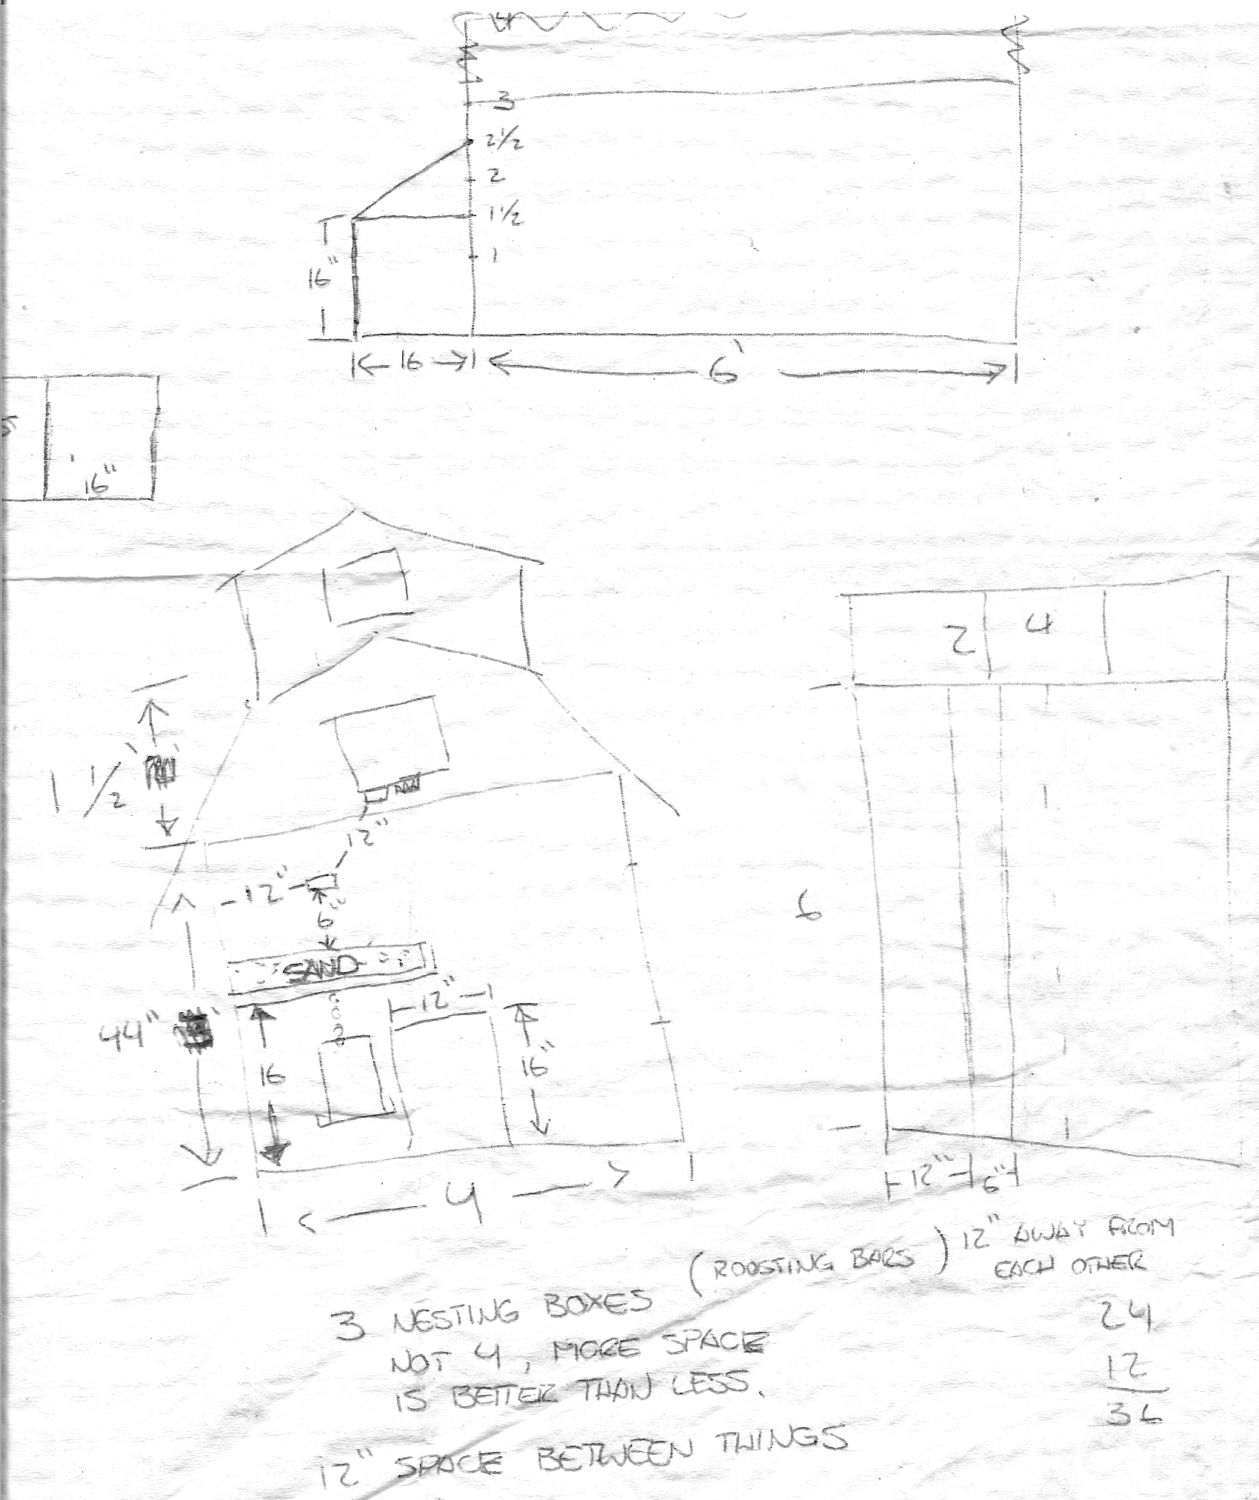 3
2 1/2
2
1 1/2
1
16"
16
6'
16"
2 4
1 1/2'
12"
12"
6"
SAND
12"
44"
16
16"
4
6
12" 6"
(ROOSTING BARS) 12" AWAY FROM
EACH OTHER
3 NESTING BOXES
NOT 4, MORE SPACE
IS BETTER THAN LESS.
12" SPACE BETWEEN THINGS
24
12
36